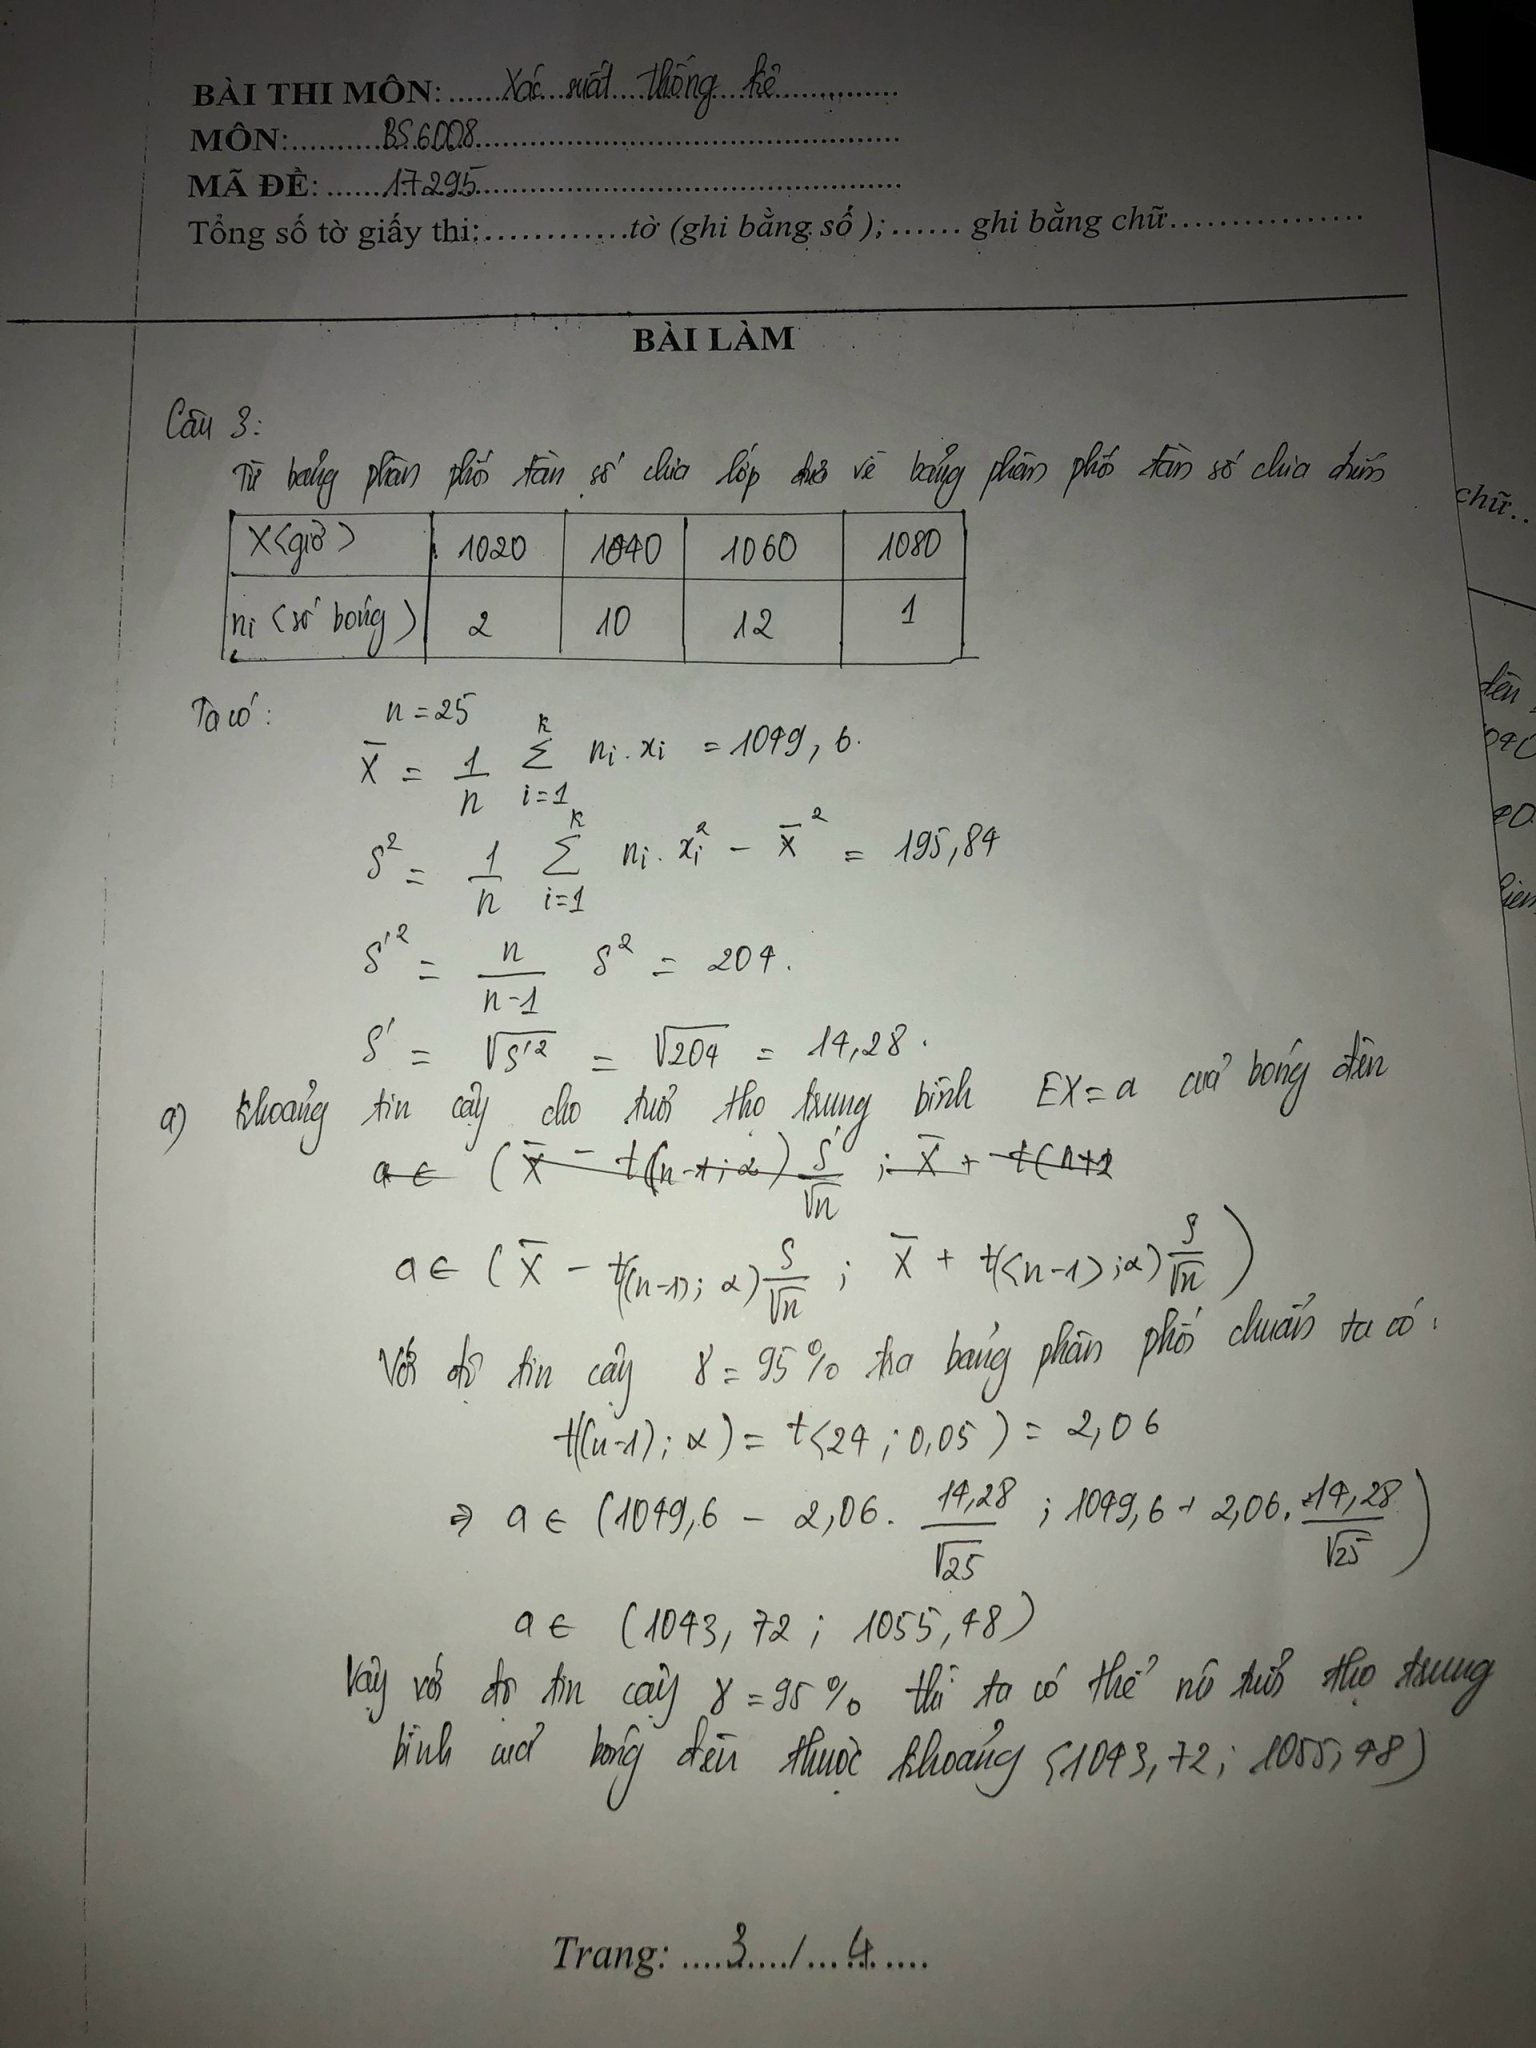 BÀI THI MÔN: Xác suất thống kê
MÔN: BS6008
MÃ ĐỀ: 17295
Tổng số tờ giấy thi: tờ (ghi bằng số ); ghi bằng chữ
BÀI LÀM
Câu 3:
Từ bảng phân phối tần số chia lớp đưa về bảng phân phối tần số chia điểm
X (giờ) 1020 1040 1060 1080
nᵢ (số bóng) 2 10 12 1
Ta có: n = 25
X̄ = 1/n Σ_{i=1}^{k} nᵢ.xᵢ = 1049,6.
S² = 1/n Σ_{i=1}^{k} nᵢ.xᵢ² - X̄² = 195,84
S'² = n/(n-1) S² = 204.
S' = √S'² = √204 = 14,28.
a) Khoảng tin cậy cho tuổi thọ trung bình EX = a của bóng đèn
a ∈ (X̄ - t((n-1); α) S/√n ; X̄ + t((n-1); α) S/√n)
Với độ tin cậy γ = 95% tra bảng phân phối chuẩn ta có:
t((n-1); α) = t(24; 0,05) = 2,06
⇒ a ∈ (1049,6 - 2,06. 14,28/√25 ; 1049,6 + 2,06. 14,28/√25)
a ∈ (1043,72 ; 1055,48)
Vậy với độ tin cậy γ = 95% thì ta có thể nói tuổi thọ trung
bình của bóng đèn thuộc khoảng (1043,72 ; 1055,48)
Trang: 3 / 4
chữ
đèn